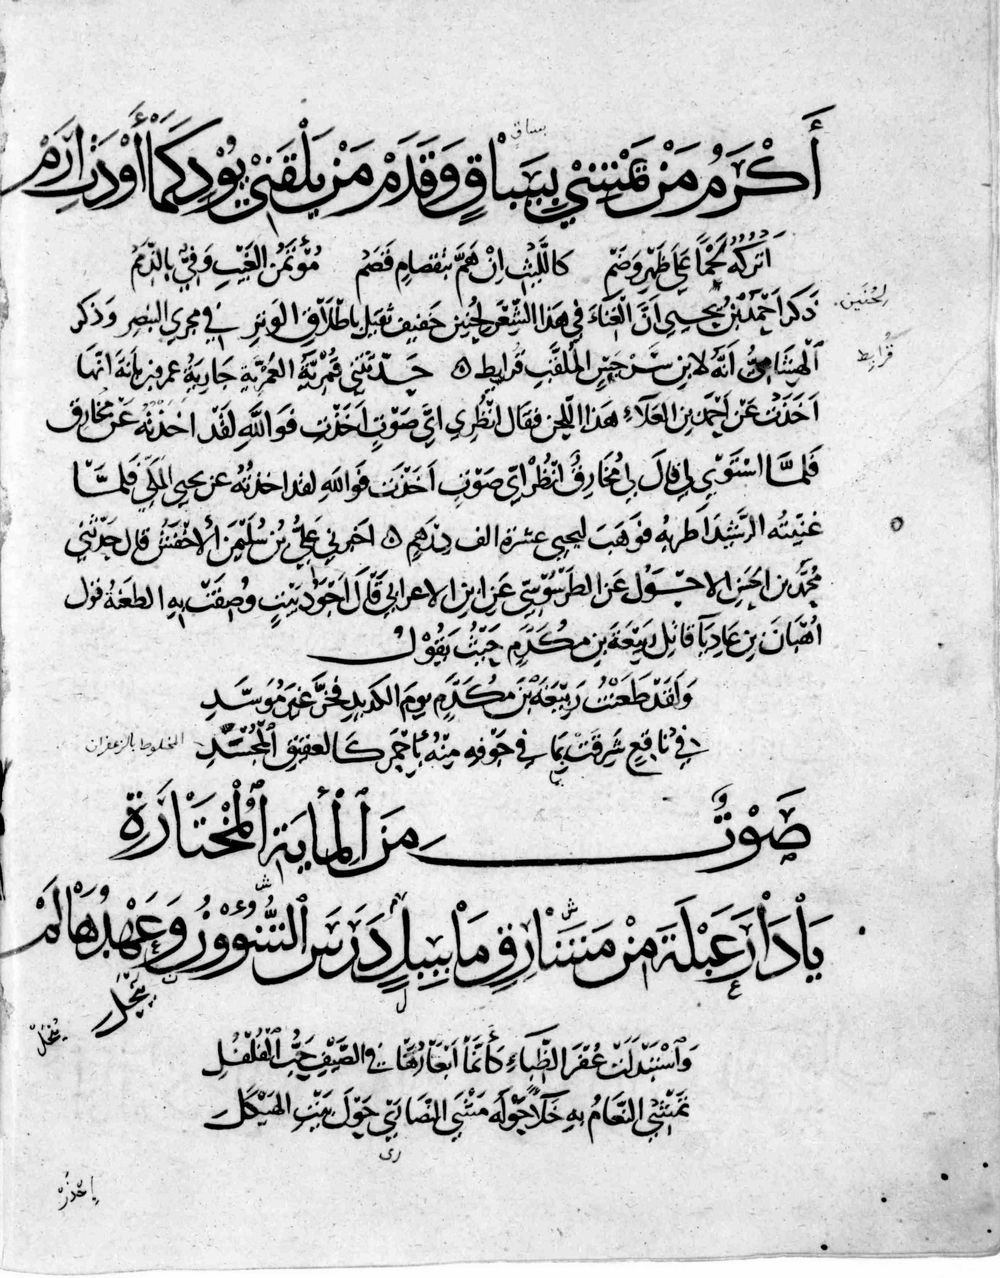 بساق
أَكْرَمُ مَنْ تَمْشِي بِبِساقٍ وَقَدَمْ مَنْ يَلْقَنِي يُودِ كَمَا أَوْدَتْ إِرَمْ
أتركه لحما على ظهر وضم كالليث إن هم بتقصام قصم مؤتمن الغيب وفي بالذمم
ذكر أحمد بن يحيى أن الغناء في هذا الشعر لحنين خفيف ثقيل باطلاق الوتر في مجرى البنصر وذكر
لحنين
الهشامي أنه لابن سرجس الملقب قراريط ه حدثتني قمرية العمرية جارية عمرو بن بانة انها
قراريط
اخذت عن احمد بن العلاء هذا اللحن فقال انظري اي صوت اخذت فوالله لقد اخذته عن مخارق
فلما استوى لي قال لي مخارق انظر اي صوت اخذت فوالله لقد اخذته عن يحيى المكي فلما
غنيته الرشيد أطربه فوهب ليحيى عشرة الف درهم ه اخبرني علي بن سليمن الأخفش قال حدثني
محمد بن الحسن الاحول عن الطرسوسي عن ابن الاعرابي قال أجود بيت وصفت به الطعنة قول
أهبان بن عاديا قاتل ربيعة بن مكدم حيث يقول
ولقد طعنت ربيعة بن مكدم يوم الكديد فخر غير موسد
في ناقع شرقت بما في جوفه منه بأحمر كالعقيق المجسد
المخلوط بالزعفران
صَوْتٌ مِنَ الْمِايَةِ الْمُخْتَارَةِ
يَا دَارَ عَبْلَةَ مِنْ مَشَارِقِ مَاسِلٍ دَرَسَ الشُّؤُونُ وَعَهْدُهَا لَمْ
يَنْجَلِ
يَنْجَلِ
واستبدلت عفر الظباء كأنما أبعارها في الصيف حب الفلفل
تمشي النعام به خلاء حوله مشي النصارى حول بيت الهيكل
رى
إحذر